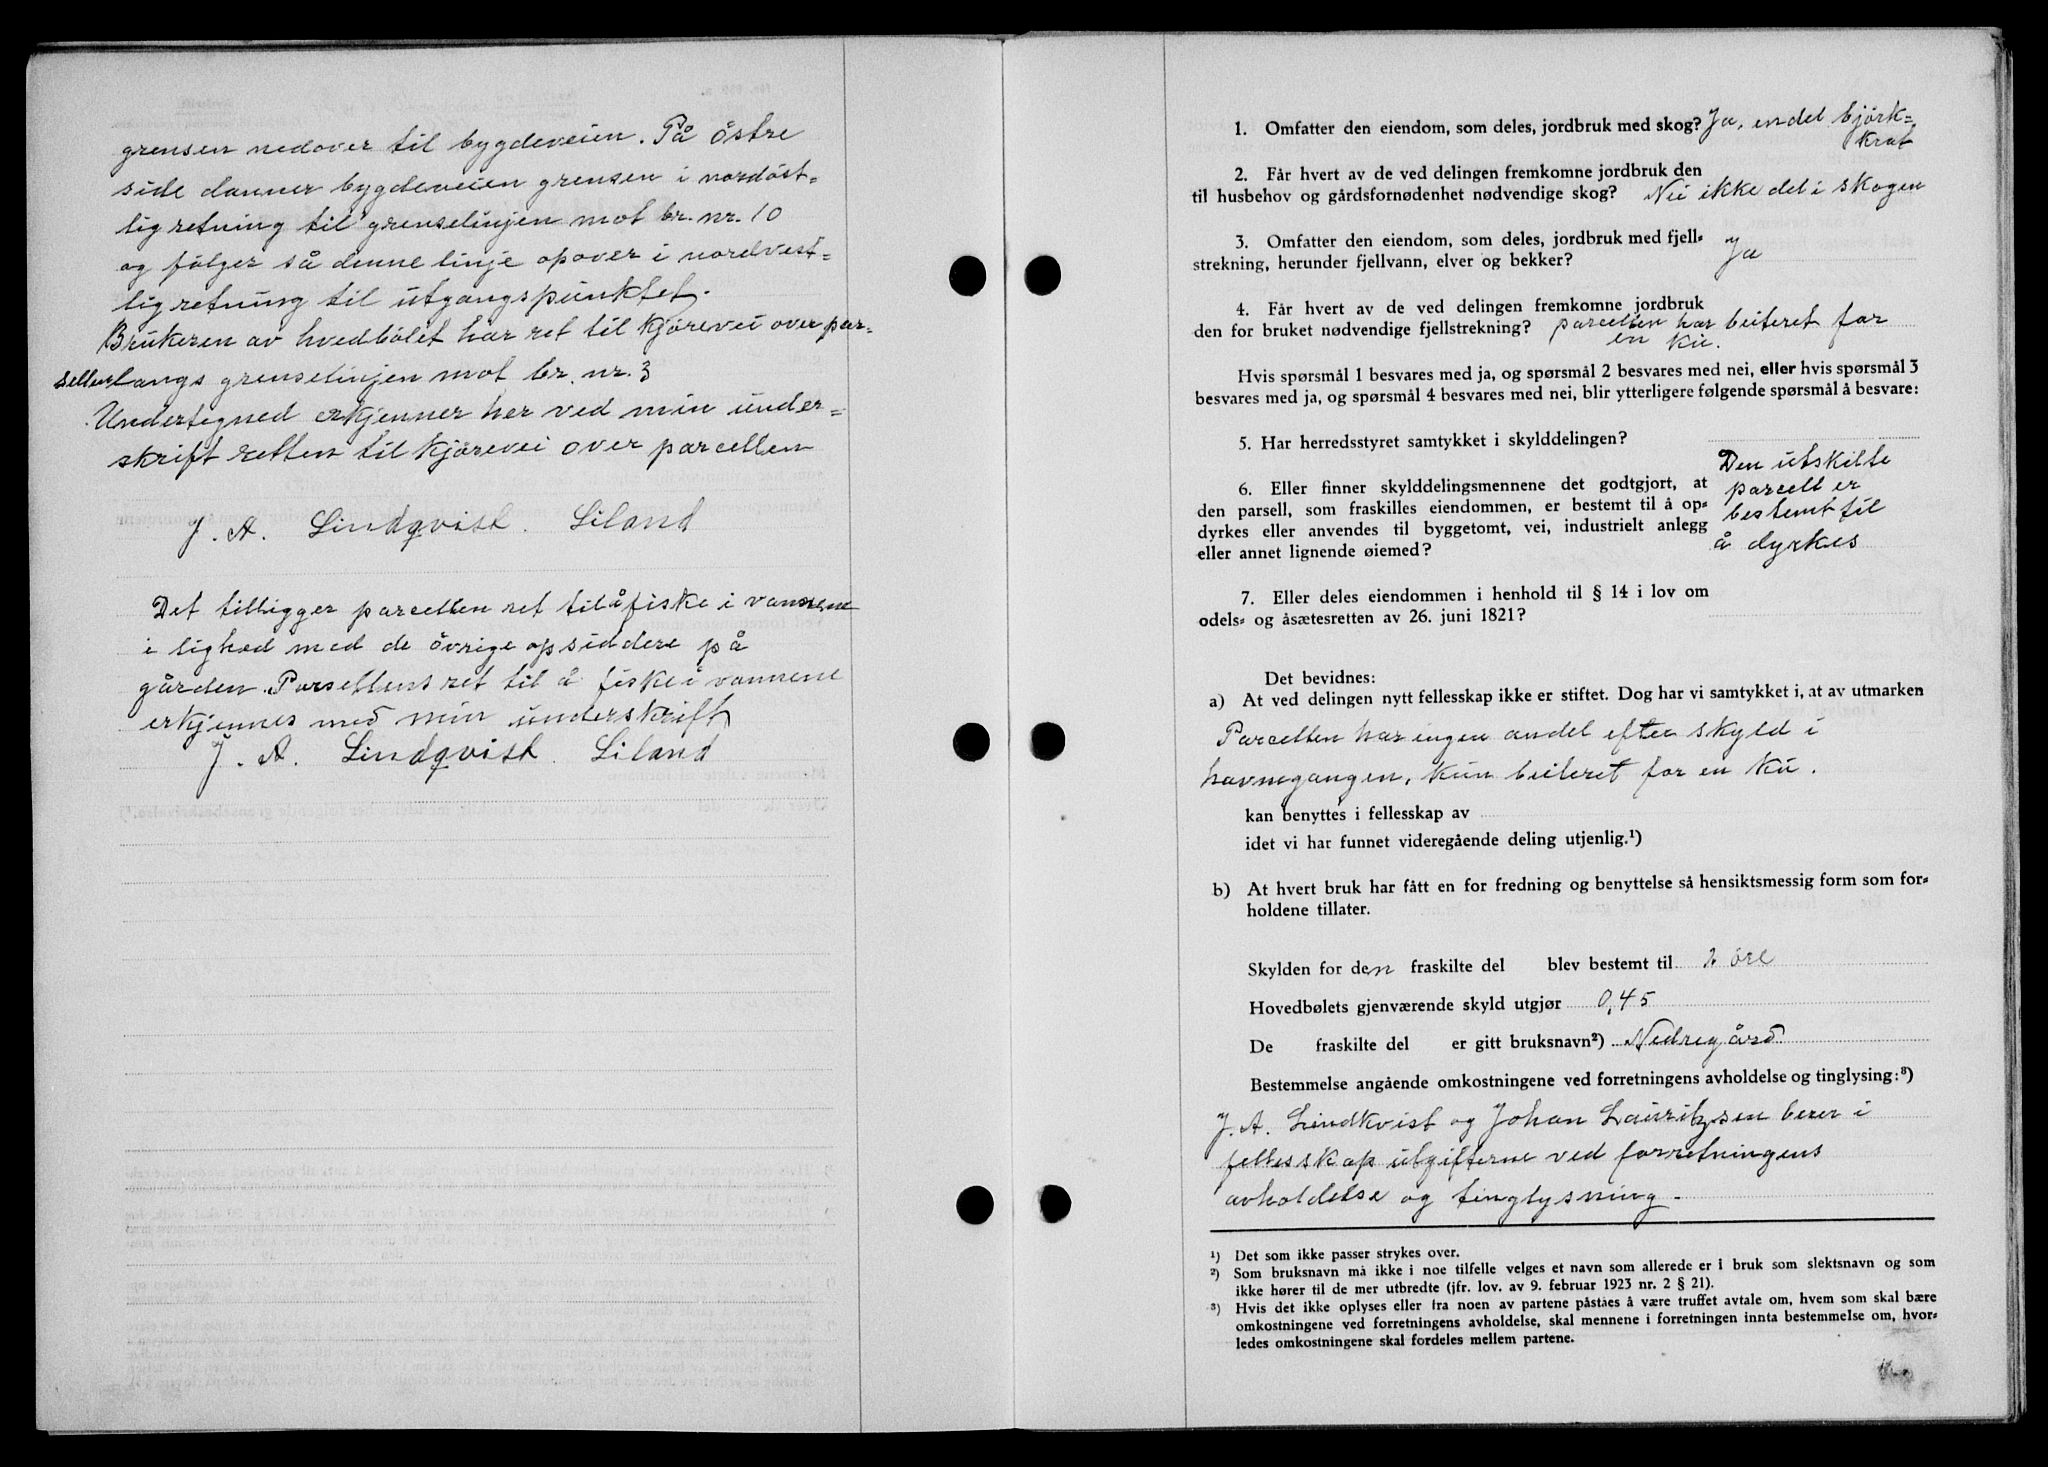 grensen nedover til bygdeveien. På östre
side danner bygdeveien grensen i nordöst=
lig retning til grenselinjen mot br. nr. 10
og følger så denne linje opover i nordvest=
lig retning til utgangspunktet.
Brukeren av hvedbölet har ret til kjörevei over par=
sellen langs grenselinjen mot br. nr. 3
Undertegned erkjenner her ved min under=
skrift retten til kjörevei over parcellen
J. A. Lindqvist. Liland
Det tilligger parcellen ret til å fiske i vannene
i lighed med de övrige opsiddere på
gården. Parsellens ret til å fiske i vannene
erkjennes med min underskrift
J. A. Lindqvist. Liland
1. Omfatter den eiendom, som deles, jordbruk med skog? Ja, endel björk=
krat
2. Får hvert av de ved delingen fremkomne jordbruk den
til husbehov og gårdsfornødenhet nødvendige skog? Nei ikke del i skogen
3. Omfatter den eiendom, som deles, jordbruk med fjell=
strekning, herunder fjellvann, elver og bekker? Ja
4. Får hvert av de ved delingen fremkomne jordbruk
den for bruket nødvendige fjellstrekning? parcellen har beiteret for
en ku.
Hvis spørsmål 1 besvares med ja, og spørsmål 2 besvares med nei, eller hvis spørsmål 3
besvares med ja, og spørsmål 4 besvares med nei, blir ytterligere følgende spørsmål å besvare:
5. Har herredsstyret samtykket i skylddelingen?
6. Eller finner skylddelingsmennene det godtgjort, at
den parsell, som fraskilles eiendommen, er bestemt til å op=
dyrkes eller anvendes til byggetomt, vei, industrielt anlegg
eller annet lignende øiemed?
Den utskilte
parcell er
bestemt til
å dyrkes
7. Eller deles eiendommen i henhold til § 14 i lov om
odels= og åsætesretten av 26. juni 1821?
Det bevidnes:
a) At ved delingen nytt fellesskap ikke er stiftet. Dog har vi samtykket i, at av utmarken
Parcellen har ingen andel efter skyld i
havnegangen, kun beiteret for en ku.
kan benyttes i fellesskap av
idet vi har funnet videregående deling utjenlig.¹)
b) At hvert bruk har fått en for fredning og benyttelse så hensiktsmessig form som for=
holdene tillater.
Skylden for den fraskilte del blev bestemt til 2 öre
Hovedbølets gjenværende skyld utgjør 0,45
De fraskilte del er gitt bruksnavn²) Nedregård
Bestemmelse angående omkostningene ved forretningens avholdelse og tinglysing:³)
J. A. Lindkvist og Johan Lauritzsen berer i
fellesskap utgifterne ved forretningens
avholdelse og tinglysning.
¹) Det som ikke passer strykes over.
²) Som bruksnavn må ikke i noe tilfelle velges et navn som allerede er i bruk som slektsnavn og som
ikke hører til de mer utbredte (jfr. lov. av 9. februar 1923 nr. 2 § 21).
³) Hvis det ikke oplyses eller fra noen av partene påståes å være truffet avtale om, hvem som skal bære
omkostningene ved forretningens avholdelse, skal mennene i forretningen innta bestemmelse om, hvor=
ledes omkostningene skal fordeles mellem partene.